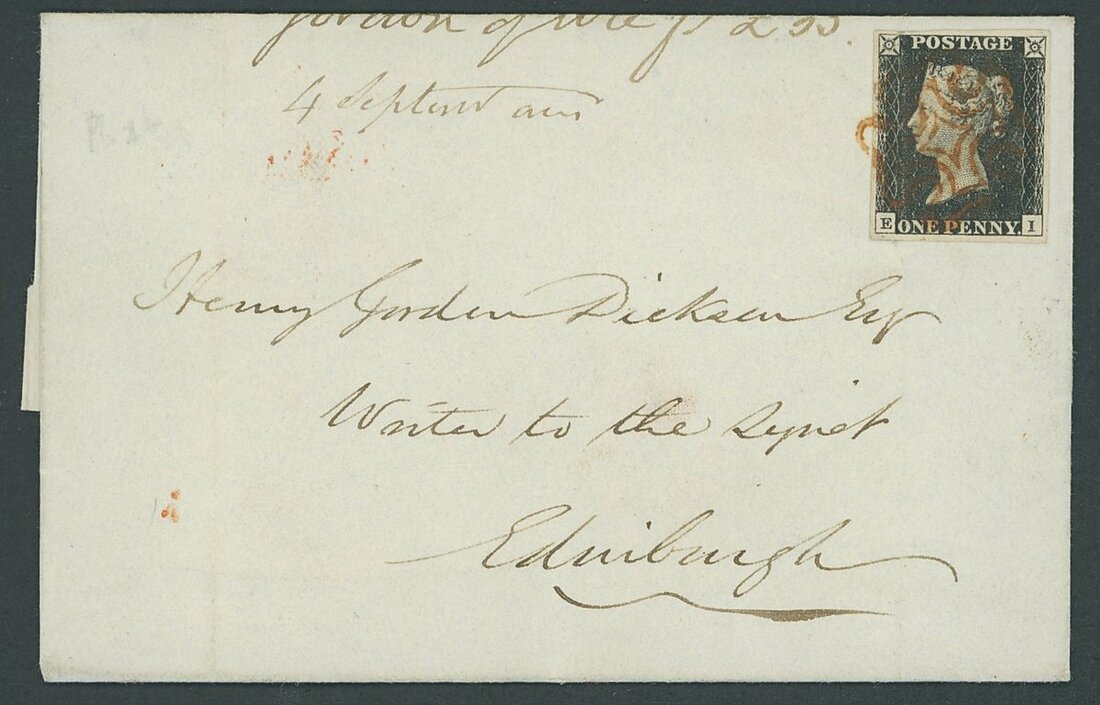 4 Septemr
POSTAGE
E ONE PENNY. I
Henry Gordon Dickson Esqr
Writer to the Signet
Edinburgh